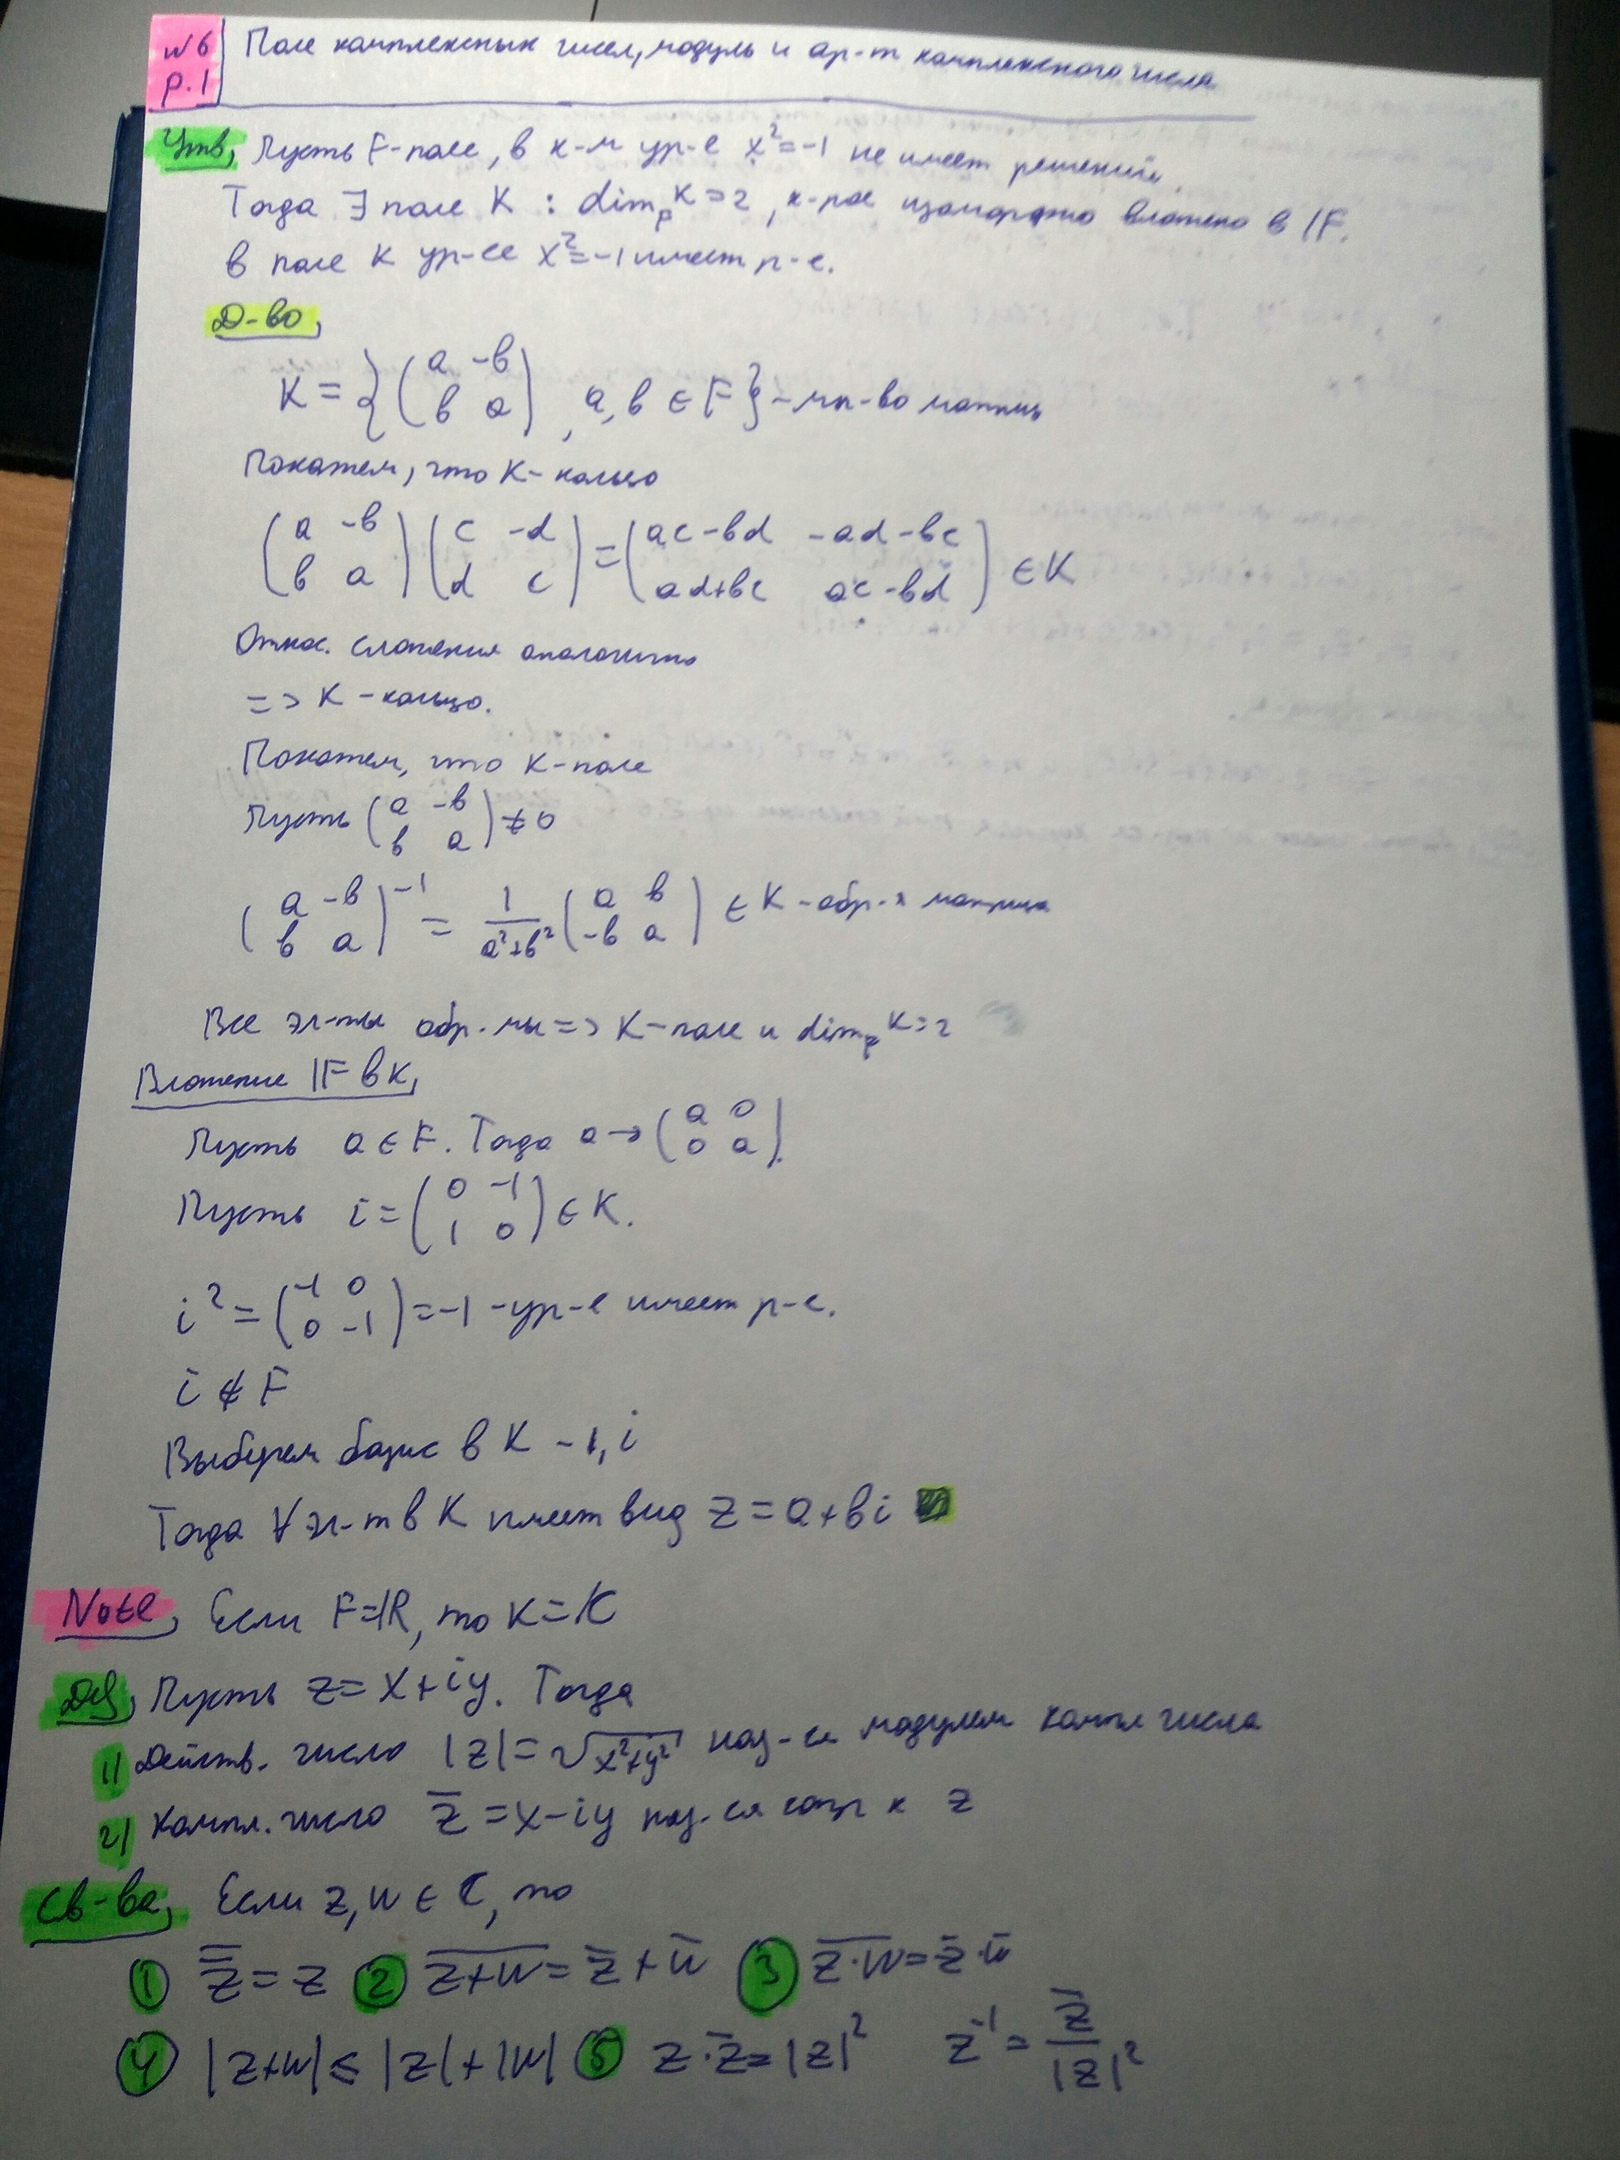 №6 р.1 Поле комплексных чисел, модуль и ар-т комплексного числа
Утв, Пусть F-поле, в к-м ур-е x²=-1 не имеет решений.
Тогда ∃ поле K : dim_F K=2, к-рое изоморфно вложено в 𝔽.
В поле K ур-ее x²=-1 имеет р-е.
Д-во,
K = {(a -b; b a), a,b ∈ F} - мн-во матриц
Покажем, что K-кольцо
(a -b; b a)(c -d; d c)=(ac-bd -ad-bc; ad+bc ac-bd) ∈ K
Относ. сложения аналогично
=> K-кольцо.
Покажем, что K-поле
Пусть (a -b; b a) ≠ 0
(a -b; b a)⁻¹ = 1/(a²+b²) (a b; -b a) ∈ K-обр-я матрица
Все эл-ты обр-мы => K-поле и dim_F K=2
Вложение 𝔽 в K,
Пусть a ∈ F. Тогда a→(a 0; 0 a).
Пусть i=(0 -1; 1 0) ∈ K.
i²=(-1 0; 0 -1)=-1 -ур-е имеет р-е.
i ∉ F
Выберем базис в K - 1, i
Тогда ∀ эл-т в K имеет вид z=a+bi
Note, Если F=ℝ, то K=ℂ
Def, Пусть z=x+iy. Тогда
1) Действ. число |z|=√(x²+y²) наз-ся модулем компл числа
2) Компл. число z̅=x-iy наз-ся сопр к z
Св-ва, Если z,w ∈ ℂ, то
① z̿=z ② \overline{z+w}=z̅+w̅ ③ \overline{z·w}=z̅·w̅
④ |z+w|≤|z|+|w| ⑤ z·z̅=|z|² z⁻¹=z̅/|z|²